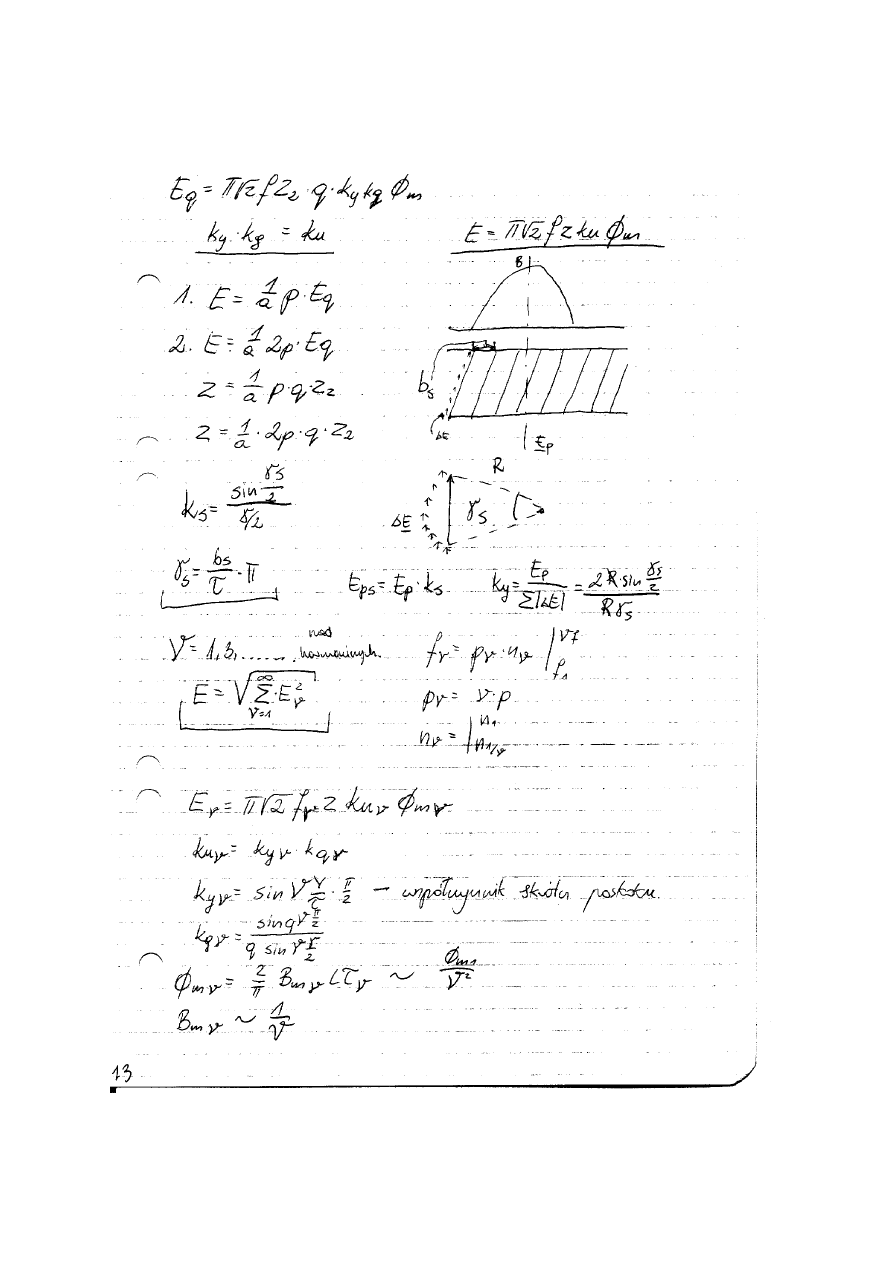 E_q = π√2 f Z_2 · q · k_y k_q Φ_m
k_y · k_q = k_u
E = π√2 f z k_u Φ_m
B
1. E = 1/a p · E_q
2. E = 1/a 2p · E_q
z = 1/a p · q · Z_2
z = 1/a · 2p · q · Z_2
b_s
ΔE
E_p
R
k_s = sin γ_s/2 / γ/2
ΔE
γ_s
γ_s = b_s/τ · π
E_ps = E_p · k_s
k_y = E_p / Σ|ΔE| = 2R · sin γ_s/2 / Rγ_s
ν = 1, 3, ........ nad harmonicznych.
f_ν = p_ν · n_ν | νf f_1
E = √ ∞ Σ ν=1 · E_ν^2
p_ν = ν · p
n_ν = | n_1 n_1/ν
E_ν = π√2 f_ν z k_uν Φ_mν
k_uν = k_yν · k_qν
k_yν = sin ν Y/τ · π/2 – współczynnik skrótu poskoku.
k_qν = sin qν π/2 / q sin ν γ/2
Φ_mν = 2/π B_mν L τ_ν ~ Φ_m1/ν^2
B_mν ~ 1/ν
13